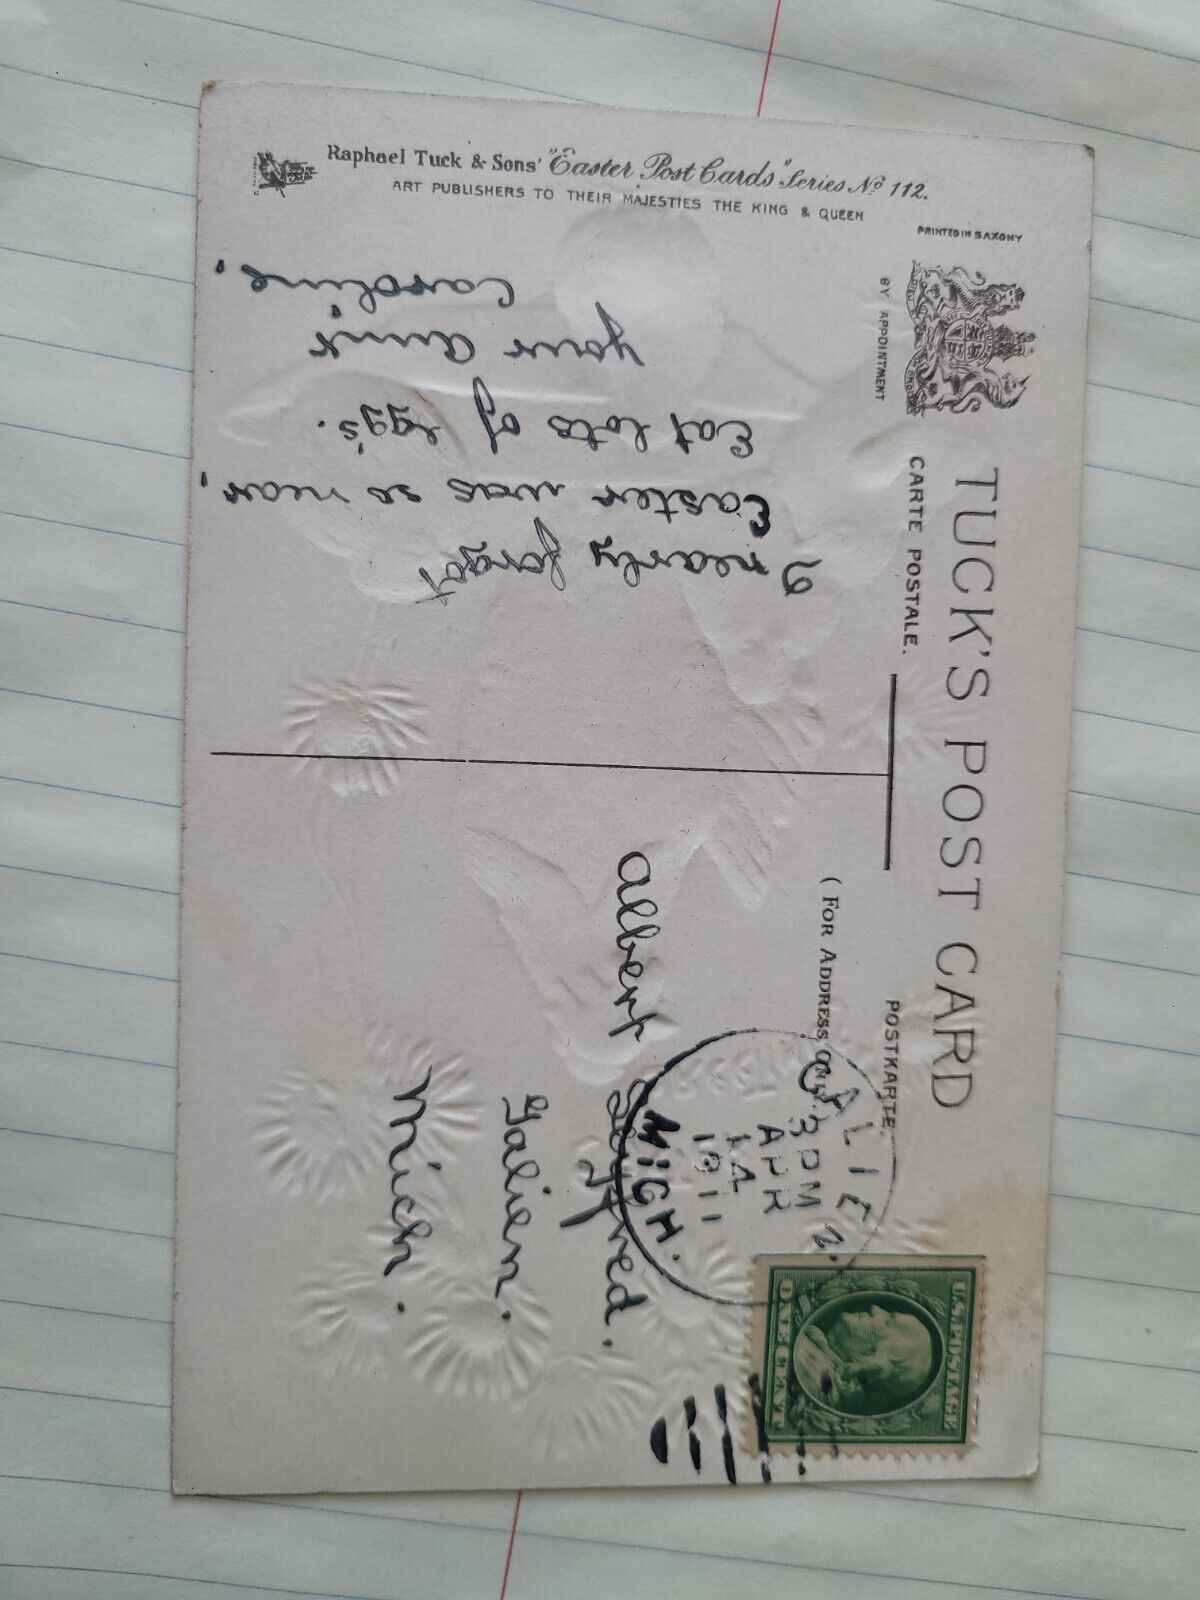 Raphael Tuck & Sons' "Easter Post Cards" Series No 112.
ART PUBLISHERS TO THEIR MAJESTIES THE KING & QUEEN
PRINTED IN SAXONY
BY APPOINTMENT
TUCK'S POST CARD
CARTE POSTALE.
POSTKARTE.
(FOR ADDRESS ONLY.
I nearly forgot
Easter was so near.
Eat lots of egg's.
your aunt
Caroline.
Albert Seyfred.
Galien.
Mich.
GALIEN.
3 PM
APR
14
1911
MICH.
U.S. POSTAGE
ONE CENT